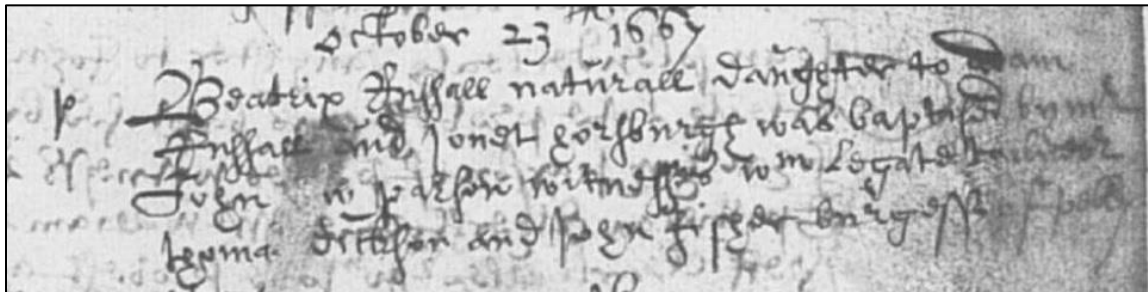 october 23 1667
p Beatrix Russall naturall daughter to Adam
Russall and Jonet horsburgh was baptised by mr
John parson witnesses wm Legate
thoma dickson and John fisher burgess